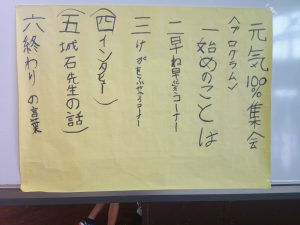 元気100%集会
〈プログラム〉
一 始めのことば
二 早ね早おきコーナー
三 けがをふせごうコーナー
(四 インタビュー)
(五 城石先生の話)
六 終わりの言葉